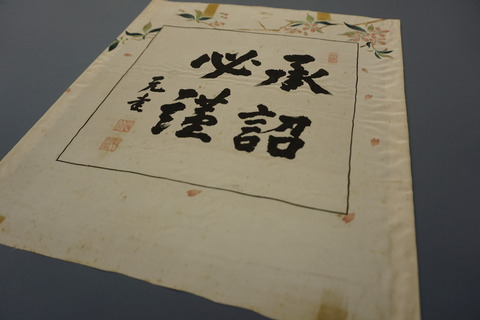 承詔
必謹
元